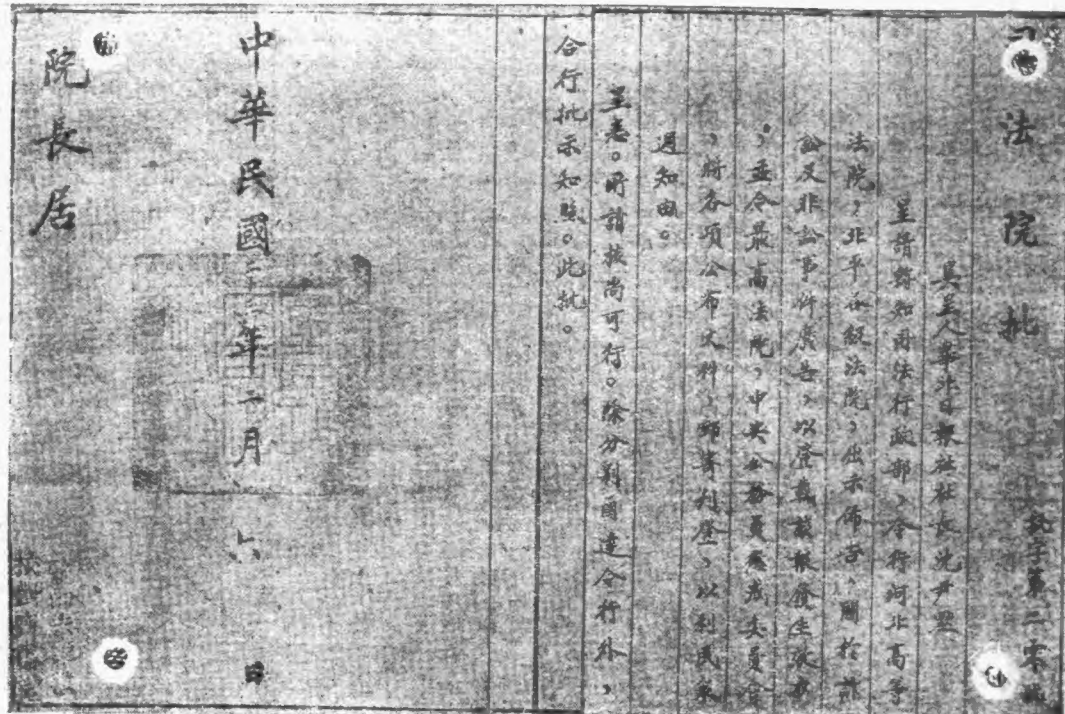 司法院批
批字第二零號
具呈人華北日報社社長沈尹默
呈請轉知司法行政部、令行河北高等
法院，北平各級法院，出示佈告、關於訴
訟及非訟事件廣告、以登載該報發生效力
，並令最高法院，中央公務員懲戒委員會
，將各項公布文件、郵寄刊登、以利民衆
週知由。
呈悉。所請核尚可行。除分別函達令行外，
合行批示知照。此批。
中華民國二十二年二月六日
院長居